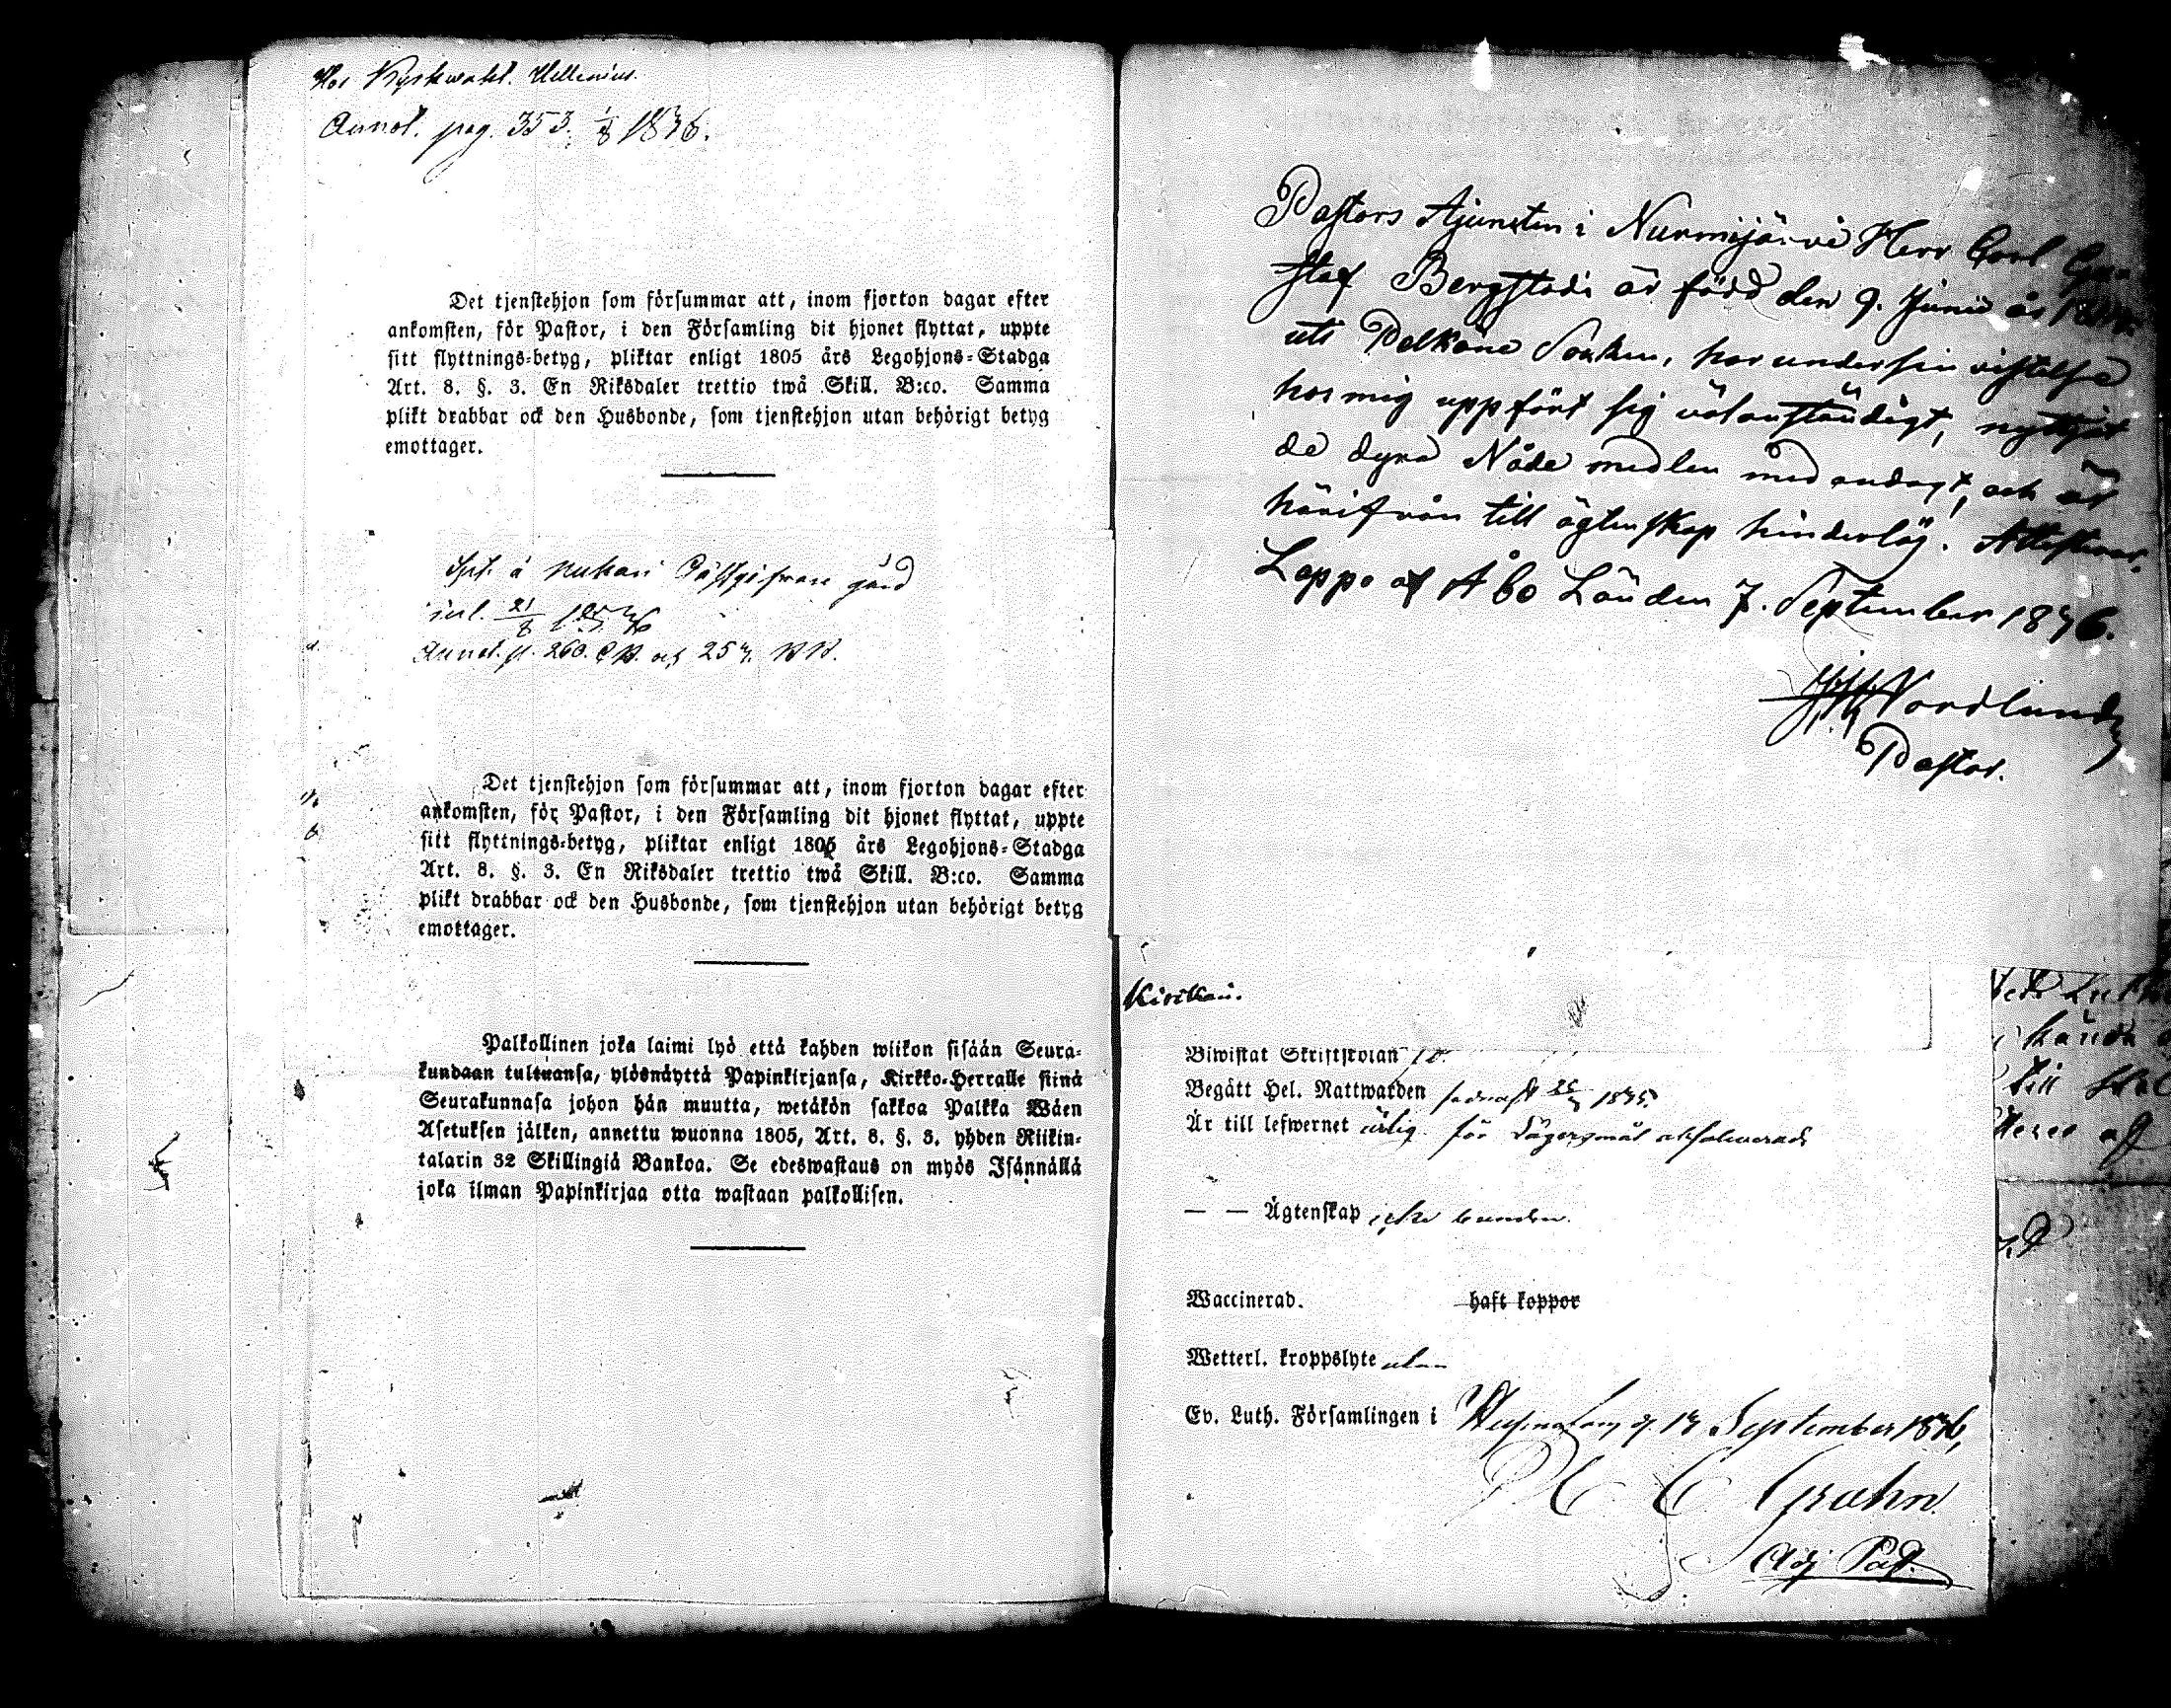 Hos Kyrkwakt. Hellenius.
Annot. pag. 353. 1/8 1836.
Det tjenstehjon som försummar att, inom fjorton dagar efter
ankomsten, för Pastor, i den Församling dit hjonet flyttat, uppte
sitt flyttnings-betyg, pliktar enligt 1805 års Legohjons-Stadga
Art. 8. §. 3. En Riksdaler trettio twå Skill. B:co. Samma
plikt drabbar ock den Husbonde, som tjenstehjon utan behörigt betyg
emottager.
å Nukari gård
inl. 21/8
Annot. p. 260. och 257.
Det tjenstehjon som försummar att, inom fjorton dagar efter
ankomsten, för Pastor, i den Församling dit hjonet flyttat, uppte
sitt flyttnings-betyg, pliktar enligt 1805 års Legohjons-Stadga
Art. 8. §. 3. En Riksdaler trettio twå Skill. B:co. Samma
plikt drabbar ock den Husbonde, som tjenstehjon utan behörigt betyg
emottager.
Palkollinen joka laimi lyö että kahden wiikon sisään Seura-
kundaan tultuansa, ylösnäyttä Papinkirjansa, Kirkko-Herralle siinä
Seurakunnasa johon hän muutta, wetäkön sakkoa Palkka Wäen
Asetuksen jälken, annettu wuonna 1805, Art. 8. §. 3. yhden Riikin-
talarin 32 Skillingiä Bankoa. Se edeswastaus on myös Isännällä
joka ilman Papinkirjaa otta wastaan palkollisen.
Pastors Ajuncten i Nurmijärvi Herr Carl Gu-
staf Bergstadi är född den 9. Junii år
uti Pelkäne Socken, har under sin vistelse
hos mig uppfört sig välanständigt, nyttjat
de dyra Nåde medlen med andagt, och är
härifrån till ägtenskap hinderlös. Attesterar.
Loppo af Åbo Län den 7. September 1836.
Nordlund
Pastor.
Biwistat Skriftskolan
Begått Hel. Nattwarden sednast 1835.
Är till lefwernet ärlig. för Lägersmål absolverad.
— — Ägtenskap icke bunden.
Waccinerad. haft koppor
Wetterl. kroppslyte utan
Ev. Luth. Församlingen i d. 13 September 1836,
Grahn.
Adj. Past.
till